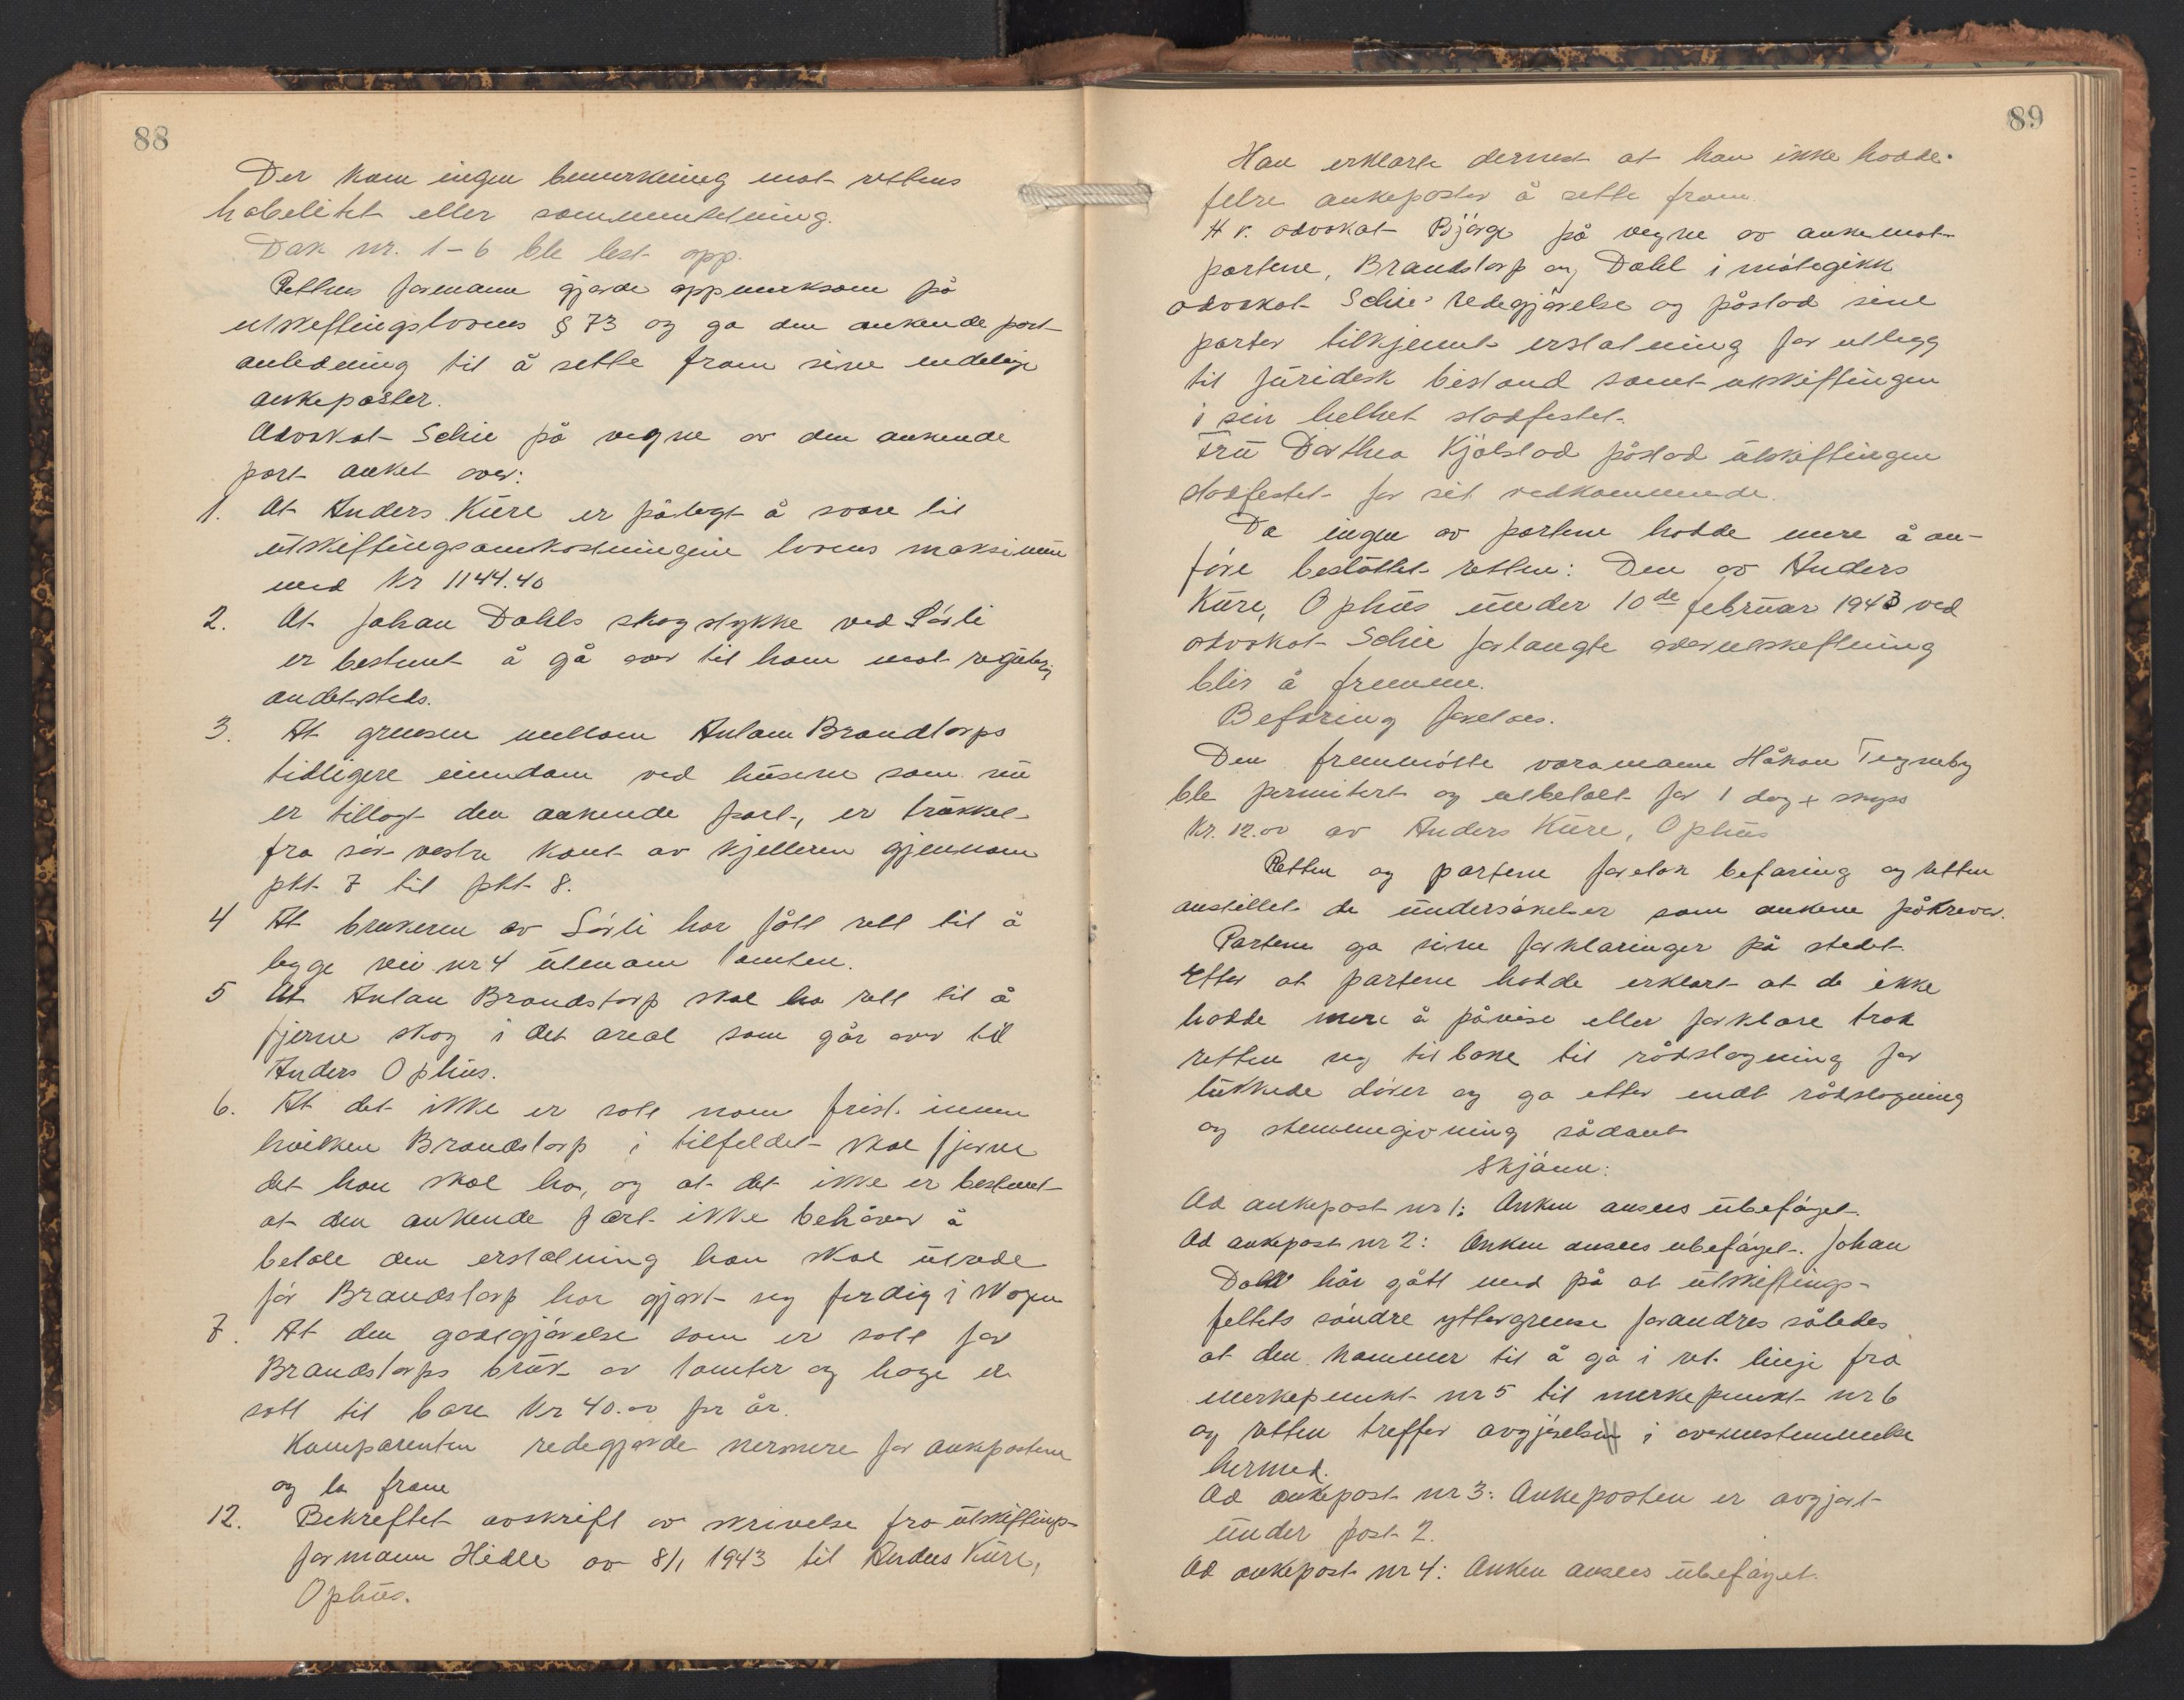 88
Der kom ingen bemerkning mot rettens
habelitet eller sammensetning.
Dok nr. 1-6 ble lest opp.
Rettens formann gjorde oppmerksom på
utskiftingslovens § 73 og ga den ankende part
anledning til å sette fram sine endelige
ankeposter.
Advokat Schie på vegne av den ankende
part anket over:
1. At Anders Kure er pålagt å svare til
utskiftingsomkostningene lovens maksimum
med kr 1144.40
2. At Johan Dahls skogstykke ved Sörli
er bestemt å gå over til ham mot
andetsteds.
3. At grensen mellom Antom Brandtorps
tidligere eiendom ved husene som nu
er tillagt den ankende part, er trukket
fra sör-vestre kant av kjelleren gjennom
pkt 7 til pkt 8.
4 At brukeren av Sörli har fått rett til å
legge vei nr 4 utenom tomten.
5 At Antan Brandstorp skal ha rett til å
fjerne skog i det areal som går over til
Anders Ophus.
6. At det ikke er satt noen frist innen
hvilken Brandstorp i tilfeldet skal fjerne
det han skal ha, og at det ikke er bestemt
at den ankende part ikke behöver å
betale den erstatning han skal utrede
för Brandstorp har gjort seg ferdig i skogen
7. At den godtgjörelse som er satt for
Brandstorps bruk av tomter og hage er
satt til bare kr 40.00 pr år.
Komparenten redegjorde nermere for ankepostene
og la fram
12. Bekreftet avskrift av skrivelse fra utskiftings-
formann Hidle av 8/1 1943 til Anders Kure,
Ophus.
89
Han erklærte dernest at han ikke hadde
felre ankeposter å sette fram.
H r. advokat Bjørge på vegne av ankemot-
partene, Brandstorp og Dahl imötegikk
advokat Schie's redegjörelse og påstod sine
parter tilkjennt erstatning for utlegg
til juridisk bistand samt utskiftingen
i sin helhet stadfestet.
Fru Dorthea Kjölstad påstod utskiftingen
stadfestet for sit vedkommende.
Da ingen av partene hadde mere å an-
före besluttet retten: Den av Anders
Kure, Ophus under 10de februar 1943 ved
advokat Schie forlangte overutskiftning
blir å fremme.
Befaring foretaes.
Den fremmötte varamann Håkon Tegneby
ble permitert og utbetalt for 1 dag + skyss
kr. 12.00 av Anders Kure, Ophus
Retten og partene foretok befaring og retten
anstillet de undersökelser som ankene påkrever.
Partene ga sine forklaringer på stedet.
Etter at partene hadde erklært at de ikke
hadde mere å påvise eller forklare trak
retten seg tilbake til rådslagning for
lukkede dörer og ga etter endt rådslagning
og stemmegivning sådant
skjönn:
Ad ankepost nr 1: Anken ansees ubeföyet.
Ad ankepost nr 2: Anken ansees ubeföyet. Johan
Dahl har gått med på at utskiftings-
feltets söndre yttergrense forandres således
at den kommer til å gå i ret linje fra
merkepunkt nr 5 til merkepunkt nr 6
og retten treffer avgjörelsen i overenstemmelse
hermed.
Ad ankepost nr 3: Ankeposten er avgjort
under post 2.
Ad ankepost nr 4: Anken ansees ubeföyet.